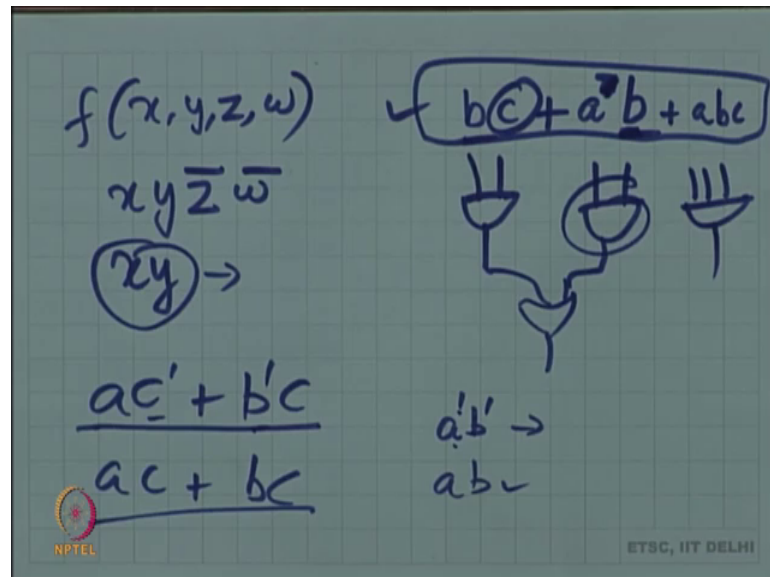 f(x, y, z, w)
x y z̅ w̅
xy →
ac' + b'c
ac + bc
✓ bc + a'b + abc
a'b' →
ab ✓
NPTEL
ETSC, IIT DELHI